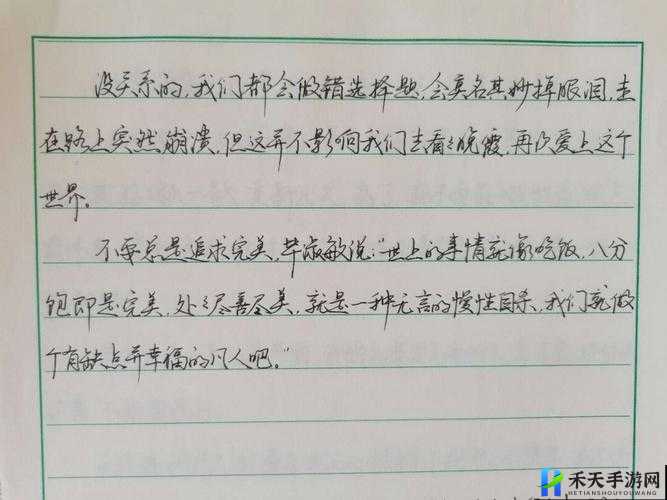 没关系的,我们都会做错选择题,会莫名其妙掉眼泪,走
在路上突然崩溃,但这并不影响我们去看看晚霞,再次爱上这个
世界。
不要总是追求完美,毕淑敏说:"世上的事情就像吃饭,八分
饱即是完美,处处尽善尽美,就是一种无言的慢性自杀,我们就做
个有缺点并幸福的凡人吧。"
禾天手游网
HETIANSHOUYOUWANG